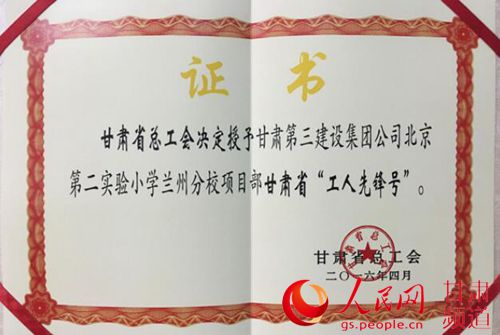 证 书
甘肃省总工会决定授予甘肃第三建设集团公司北京
第二实验小学兰州分校项目部甘肃省“工人先锋号”。
甘肃省总工会
二〇一六年四月
甘肃省总工会
人民网 甘肃
频道
gs.people.cn